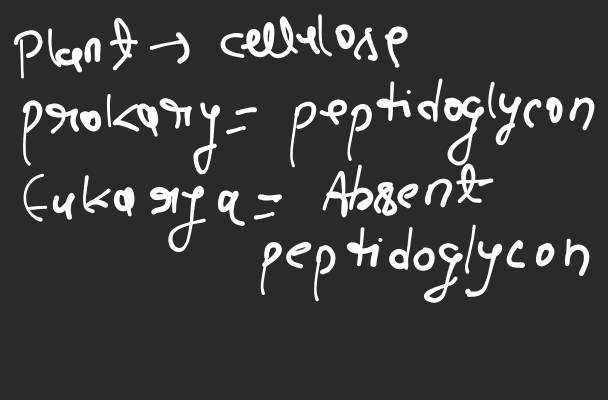 Plant → cellulose
prokary = peptidoglycon
Eukarya = Absent
peptidoglycon